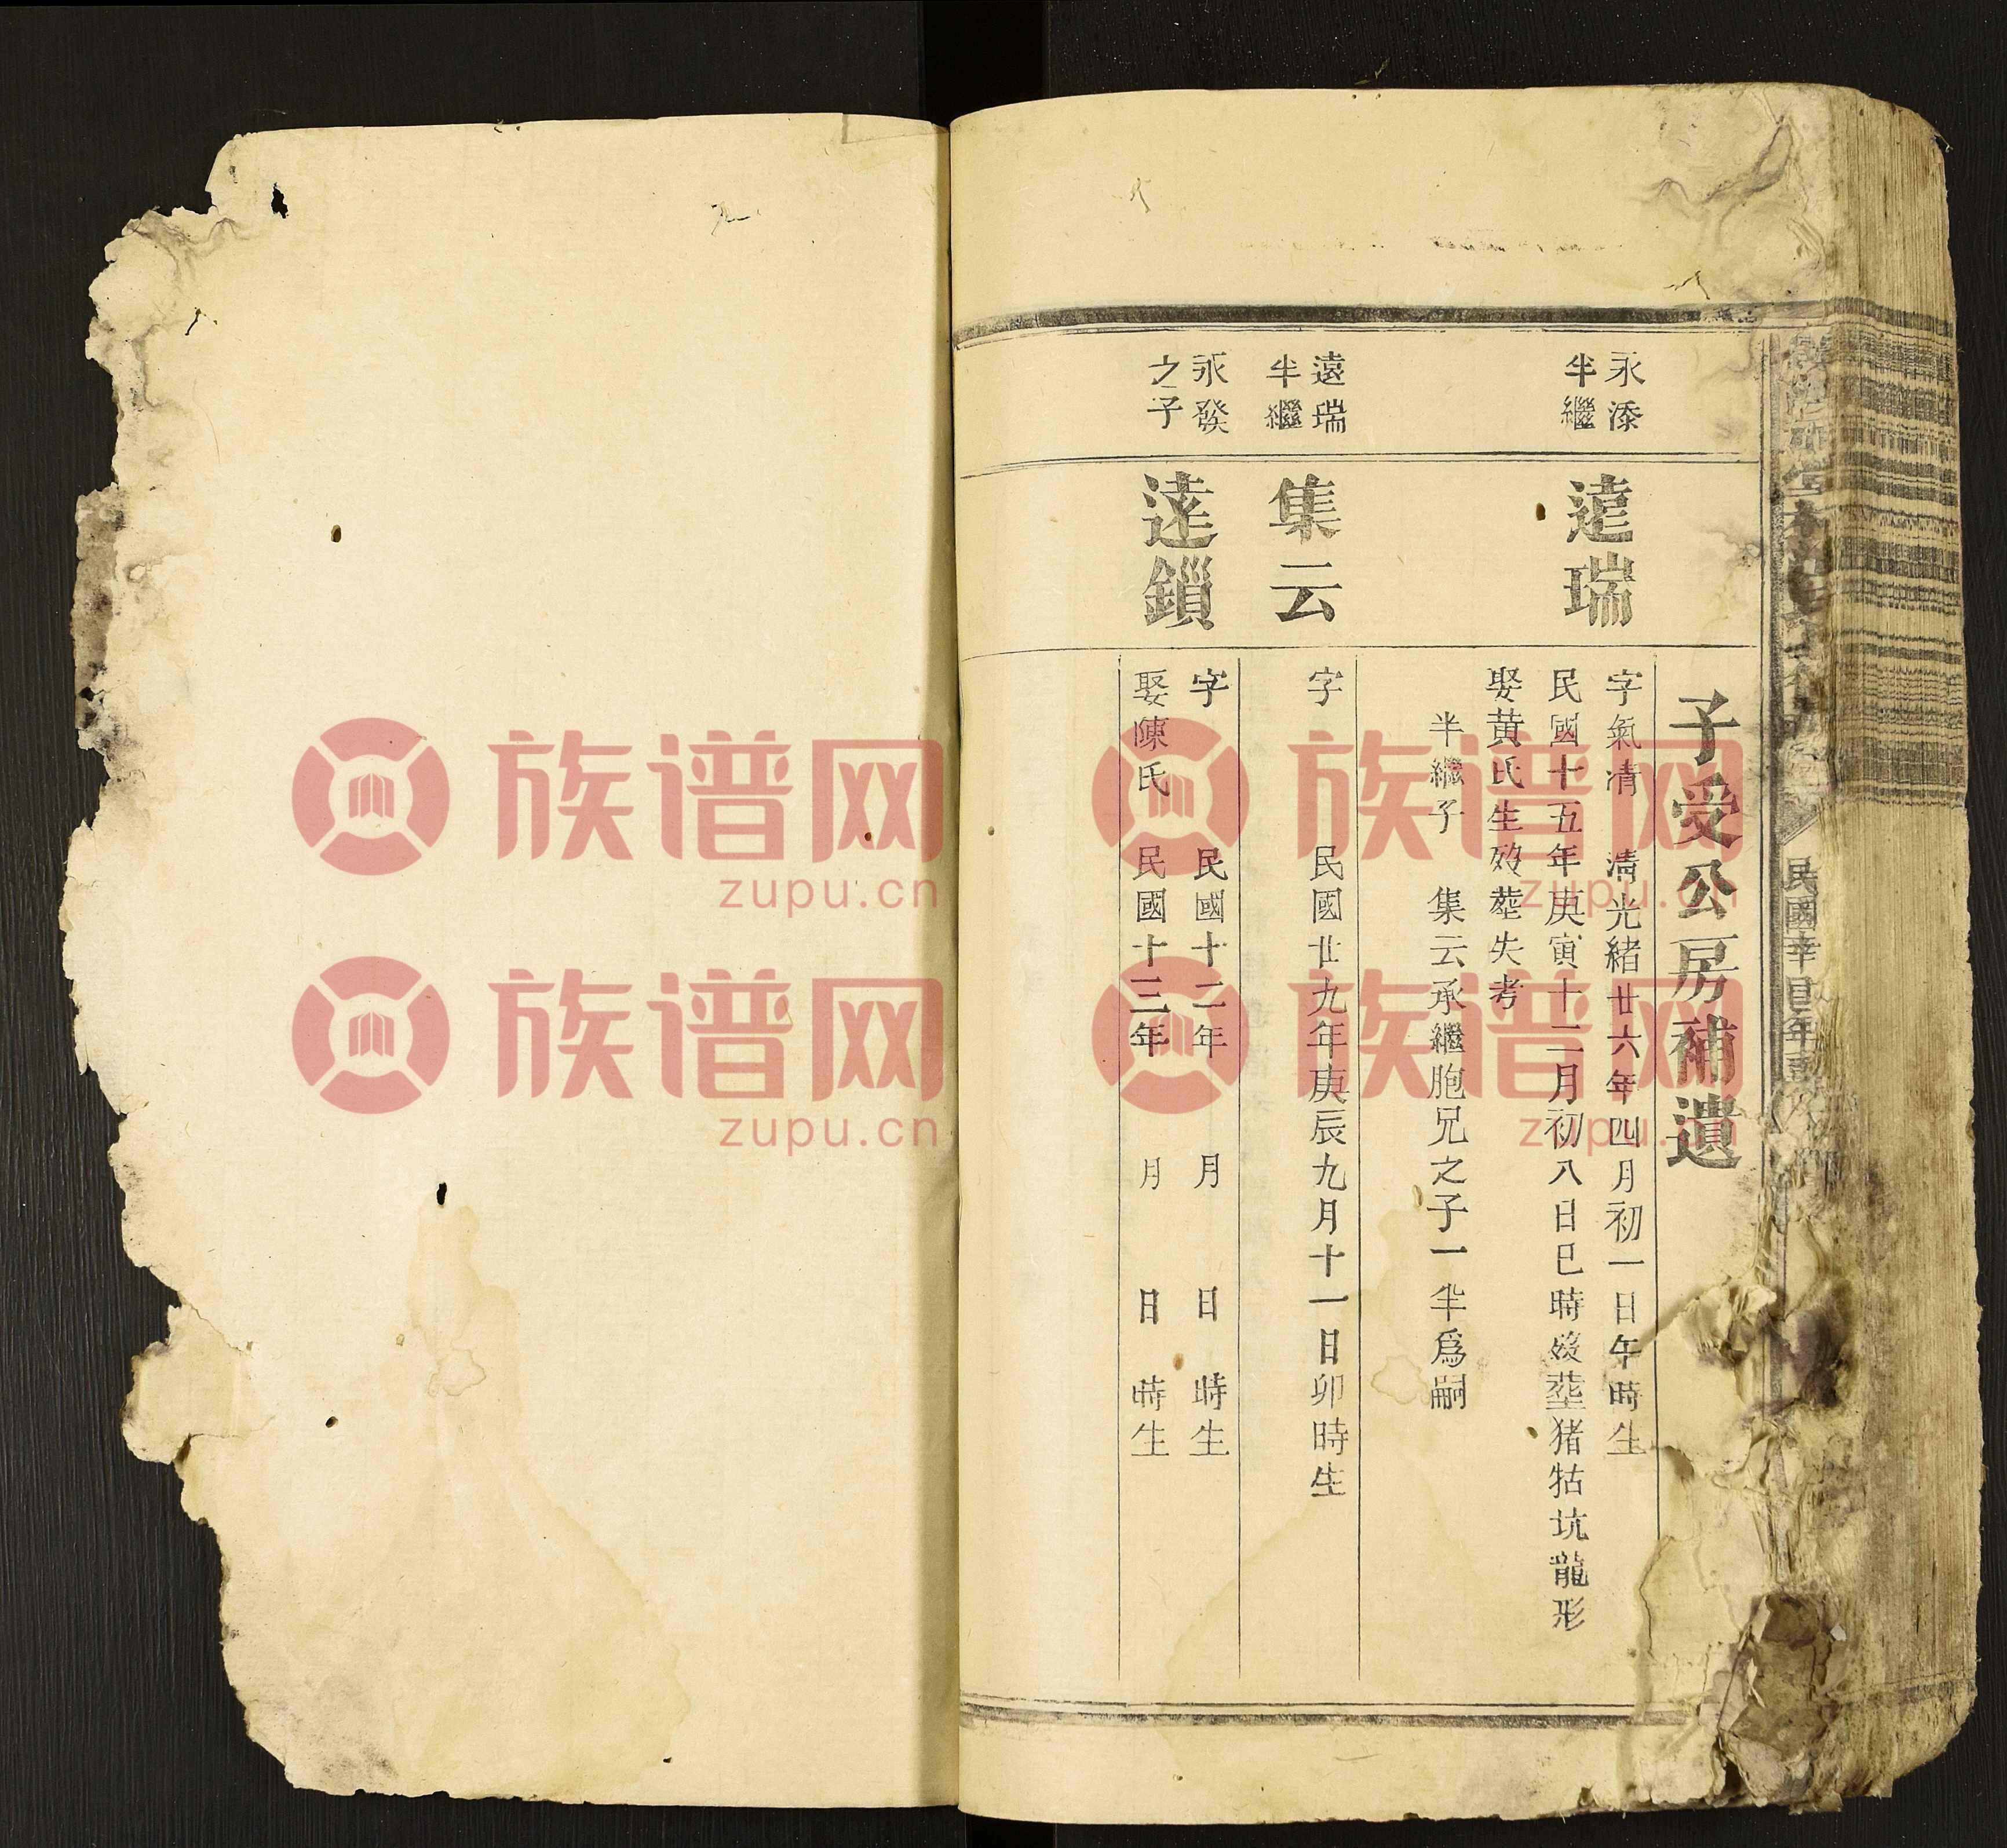 子受公房補遺
永添
半繼
達瑞
字氣清 清光緒廿六年四月初一日午時生
民國十五年庚寅十二月初八日巳時歿塟猪牯坑龍形
娶黄氏生歿塟失考
半繼子 集云承繼胞兄之子一半爲嗣
遠瑞
半繼
集云
字 民國廿九年庚辰九月十一日卯時生
永發
之子
達鎖
字 民國十二年 月 日 時生
娶陳氏 民國十三年 月 日 時生
族谱网
zupu.cn
族谱网
zupu.cn
族谱网
zupu.cn
族谱网
zupu.cn